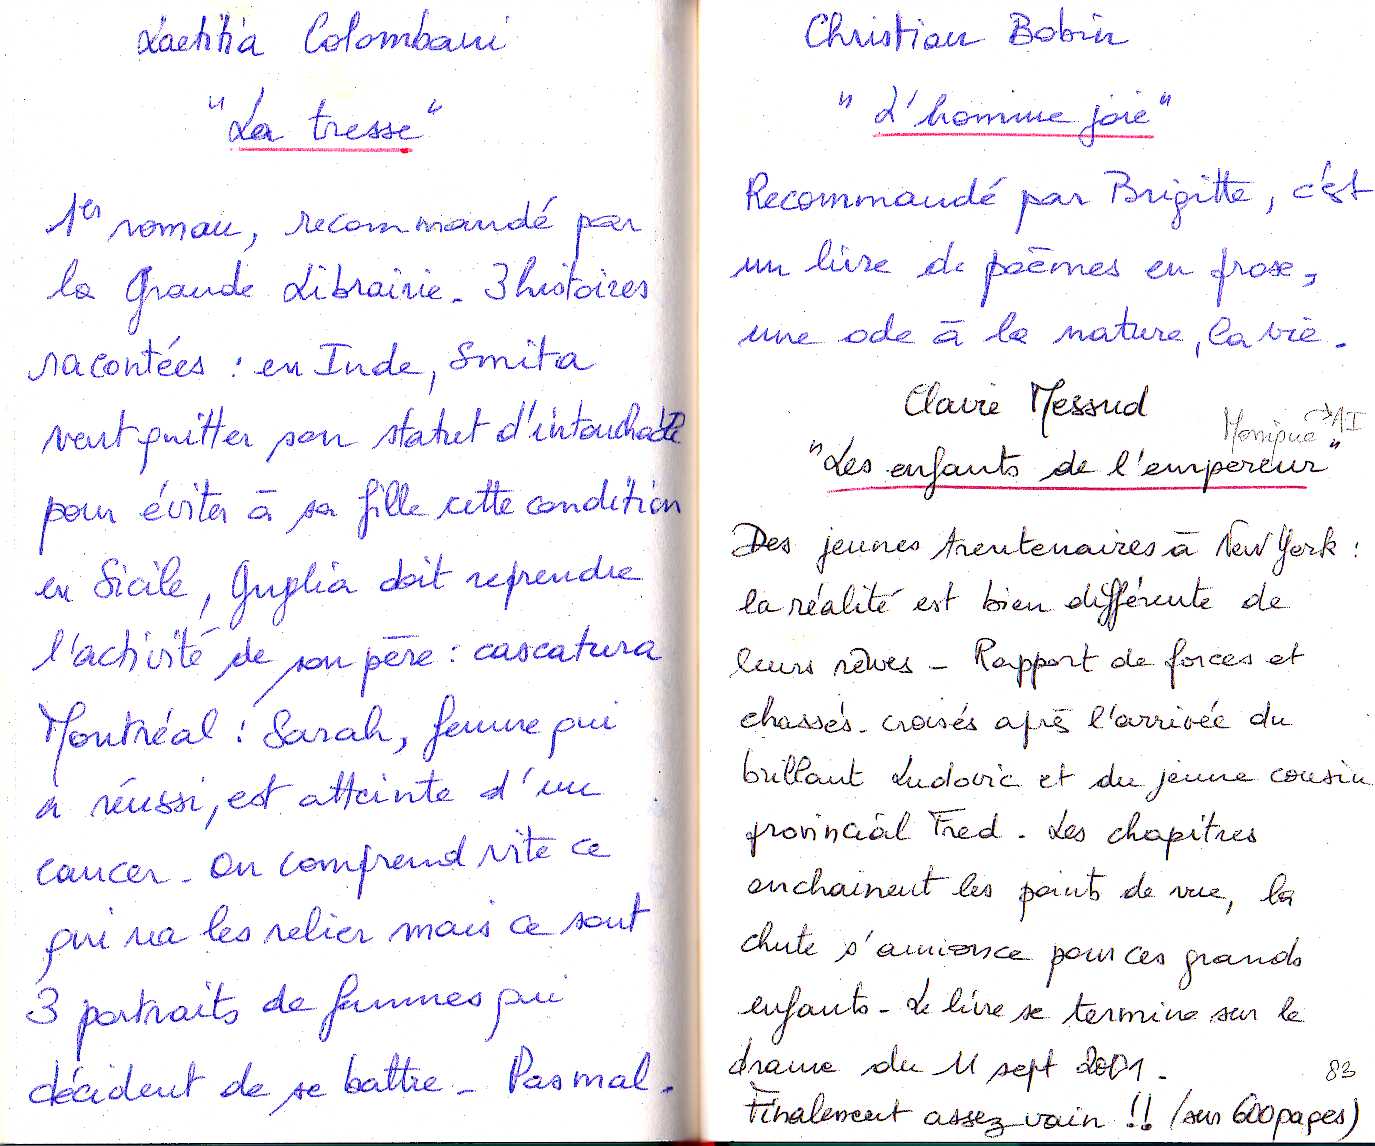 Laetitia Colombani
"La tresse"
1er roman, recommandé par
la Grande Librairie - 3 histoires
racontées : en Inde, Smita
veut quitter son statut d'intouchable
pour éviter à sa fille cette condition
en Sicile, Giuglia doit reprendre
l'activité de son père : cascatura
Montréal : Sarah, femme qui
a réussi, est atteinte d'un
cancer - On comprend vite ce
qui va les relier mais ce sont
3 portraits de femmes qui
décident de se battre - Pas mal.
Christian Bobin
"L'homme joie"
Recommandé par Brigitte, c'est
un livre de poèmes en prose,
une ode à la nature, la vie.
Claire Messud
Monique → AI
"Les enfants de l'empereur"
Des jeunes trentenaires à New York :
la réalité est bien différente de
leurs rêves - Rapport de forces et
chassés-croisés après l'arrivée du
brillant Ludovic et du jeune cousin
provincial Fred. Les chapitres
enchainent les points de vue, la
chute s'annonce pour ces grands
enfants - Le livre se termine sur le
drame du 11 sept 2001 -
83
Finalement assez vain !! (sur 600 pages)